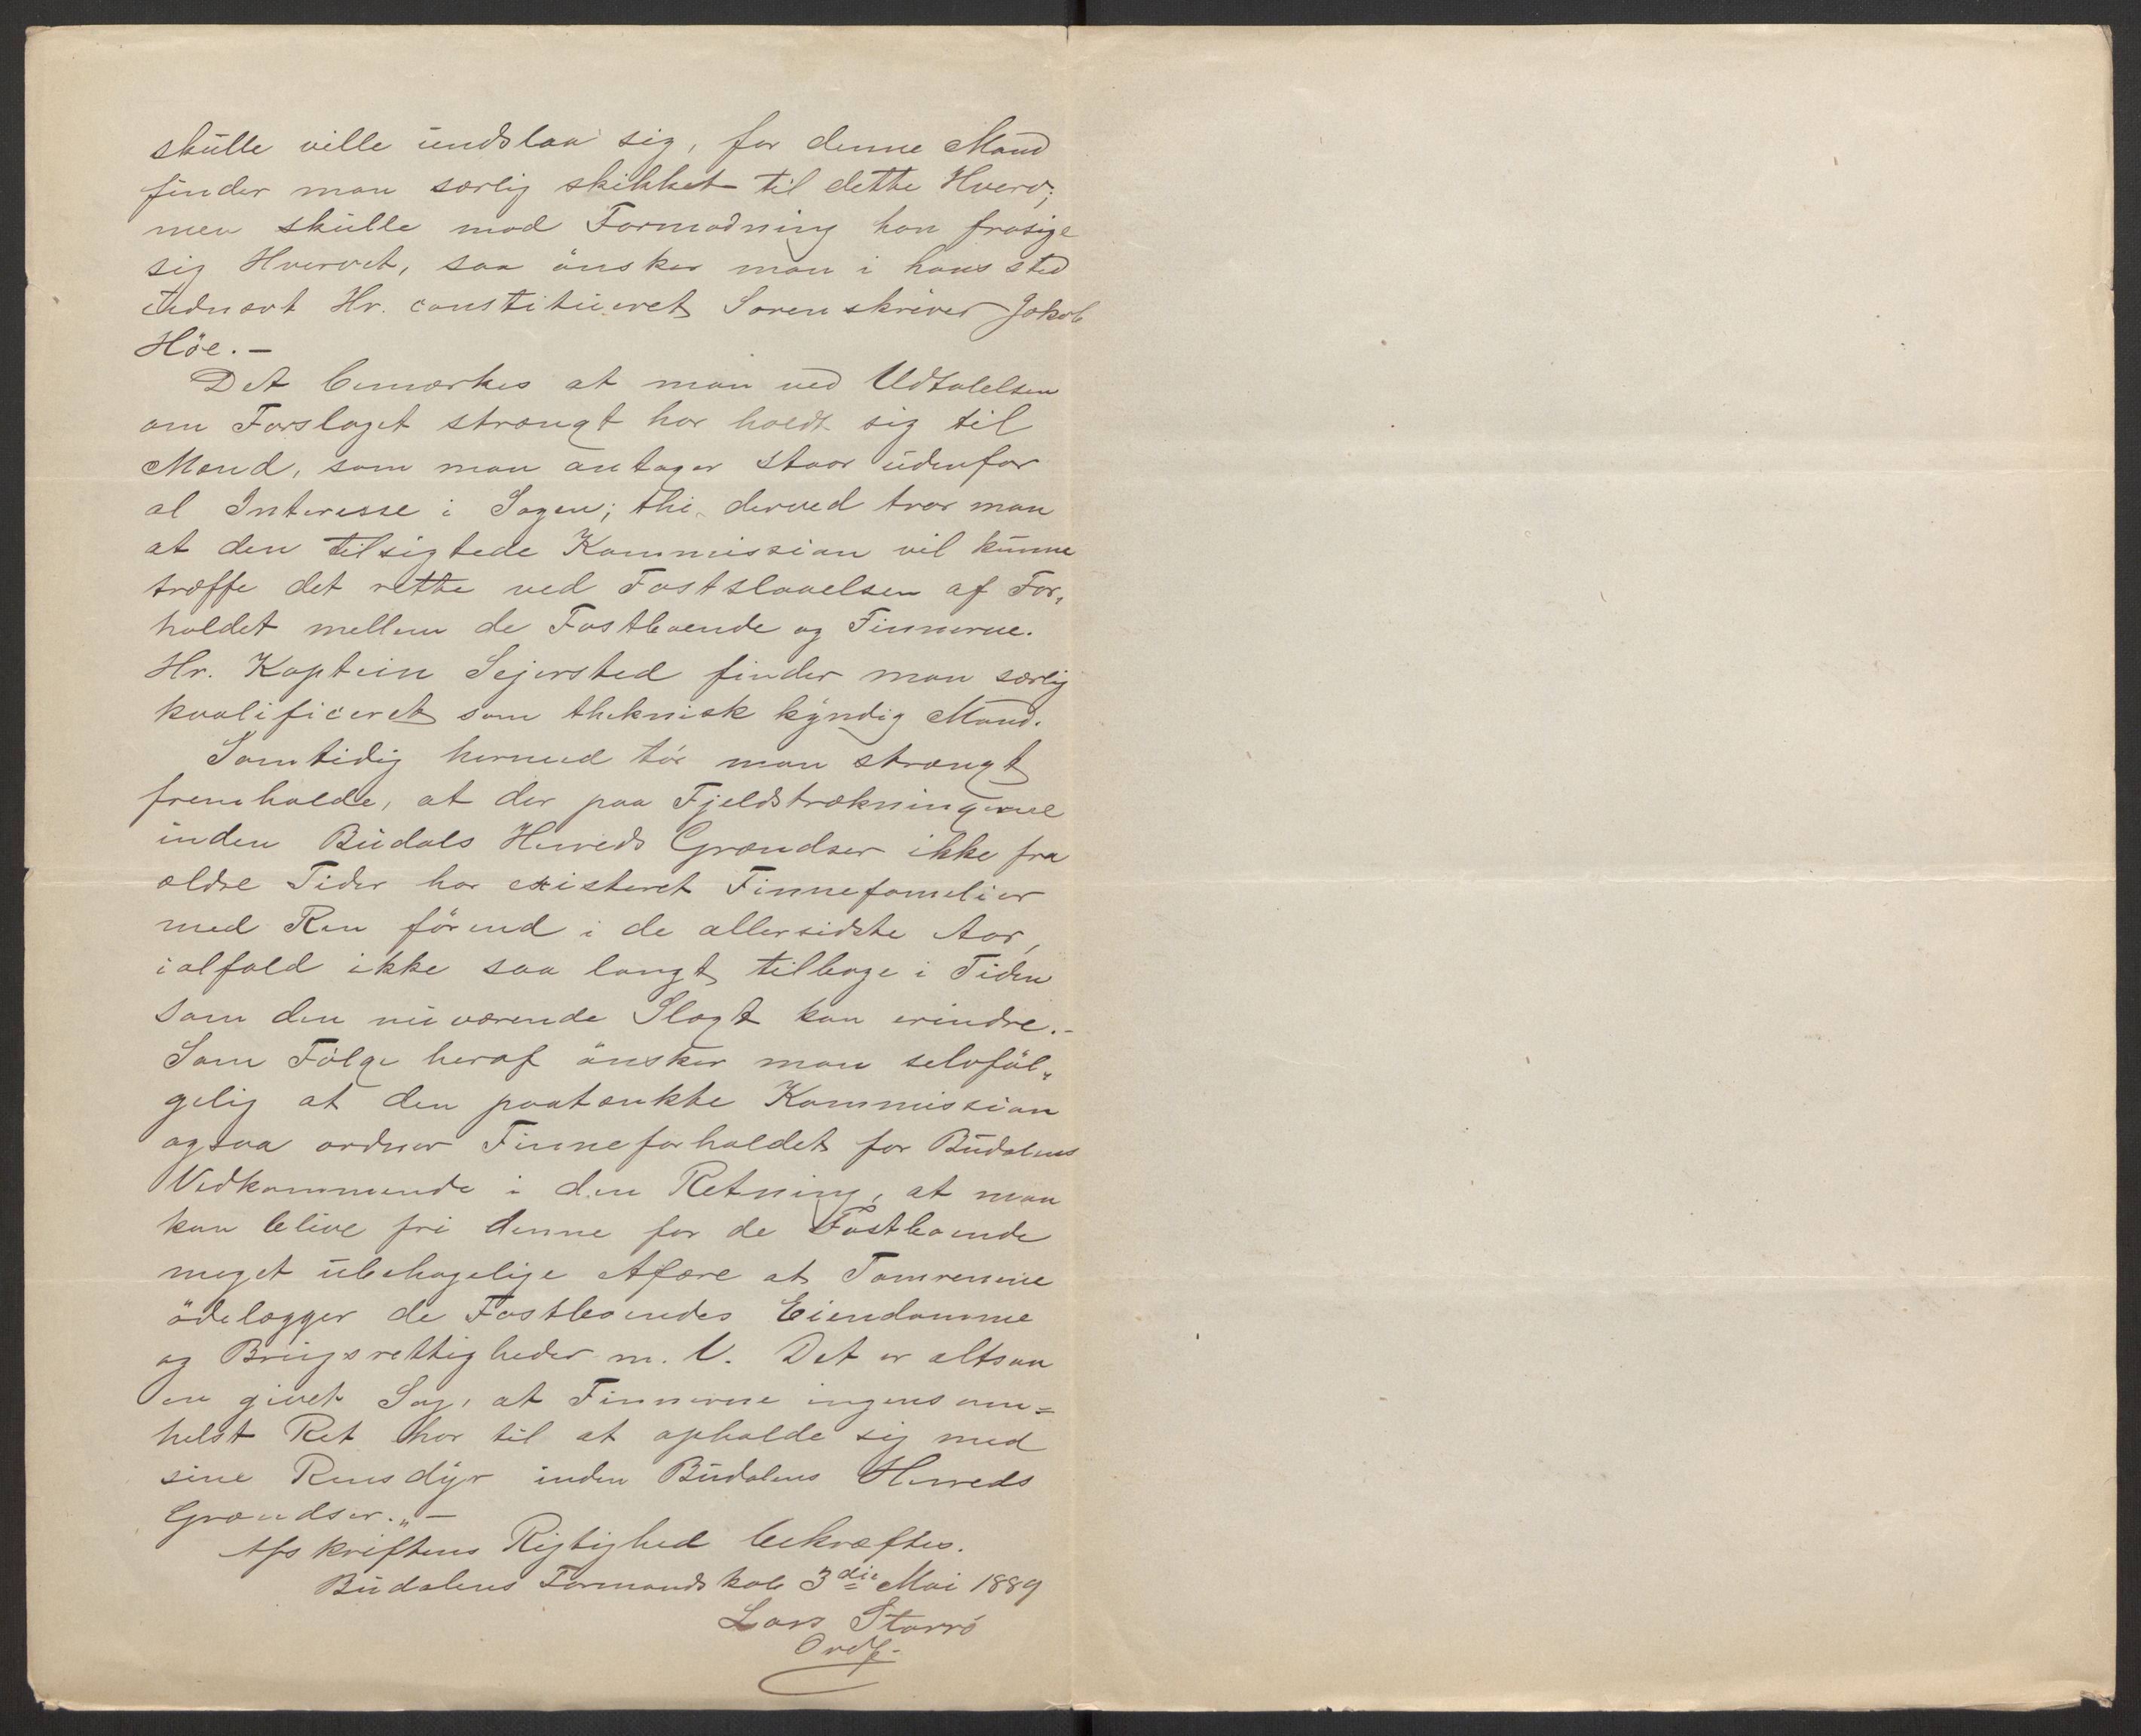 skulle ville undslaa sig, for denne Mand
finder man særlig skikket til dette Hverv;
men skulle mod Formodning han frasige
sig Hvervet, saa önsker man i hans sted
udnævt Hr. constitueret Sorenskriver Jakob
Höe. —
Det bemærkes at man ved Udtalelsen
om Forslaget strængt har holdt sig til
Mænd, som man antager staar udenfor
al Interesse i Sagen; thi derved tror man
at den tilsigtede Kommission vil kunne
træffe det rette ved Fastslaaelsen af For„
holdet mellem de Fastboende og Finnerne.
Hr. Kaptein Sejersted finder man særlig
kvalificeret som theknisk kyndig Mand.
Samtidig hermed tör man strængt
fremholde, at der paa Fjeldstrækningerne
inden Budals Herreds Grændser ikke fra
ældre Tider har existeret Finnefamelier
med Ren förend i de allersidste Aar,
ialfald ikke saa langt tilbage i Tiden
som den nuværende Slægt kan erindre. –
Som Fölge heraf önsker man selvföl„
gelig at den paatænkte Kommission
ogsaa ordner Finneforholdet for Budalens
Vedkommende i den Retning, at man
kan blive fri denne for de Fastboende
meget ubehagelige Afære at Tamrenene
ödelægger de Fastboendes Eiendomme
og Brugsrettigheder m. V. Det er altsaa
en givet Sag, at Finnerne ingensom=
helst Ret har til at opholde sig med
sine Rensdyr inden Budalens Herreds
Grændser." —
Afskriftens Rigtighed bekræftes.
Budalens Formandskab 3die Mai 1889
Lars Storrö
Ordf.